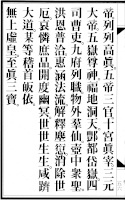 帝列列高眞五帝三官十宮眞宰三元
大帝五嶽尊神福地洞天酆都岱嶽四
司曹吏九府列職物外羣仙壺中衆聖
洪恩普洽惠涵法流解釋塵愆消除世
厄哀憐庶品開度幽冥世世生生咸躋
大道某等稽首皈依
無上虛皇至眞三寶